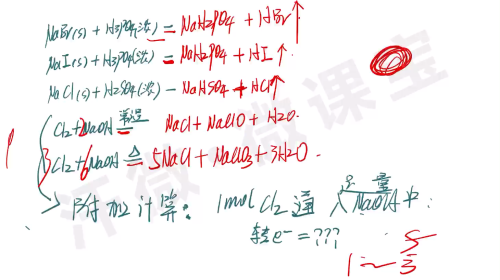 NaBr(s) + H3PO4(浓) = NaH2PO4 + HBr↑
NaI(s) + H3PO4(浓) = NaH2PO4 + HI↑
NaCl(s) + H2SO4(浓) - NaHSO4 + HCl↑
Cl2 + 2NaOH 常温 = NaCl + NaClO + H2O.
3Cl2 + 6NaOH △ = 5NaCl + NaClO3 + 3H2O.
附加计算: 1mol Cl2 通入足量 NaOH中:
转e- = ???
1 ~ 5/3
微课宝